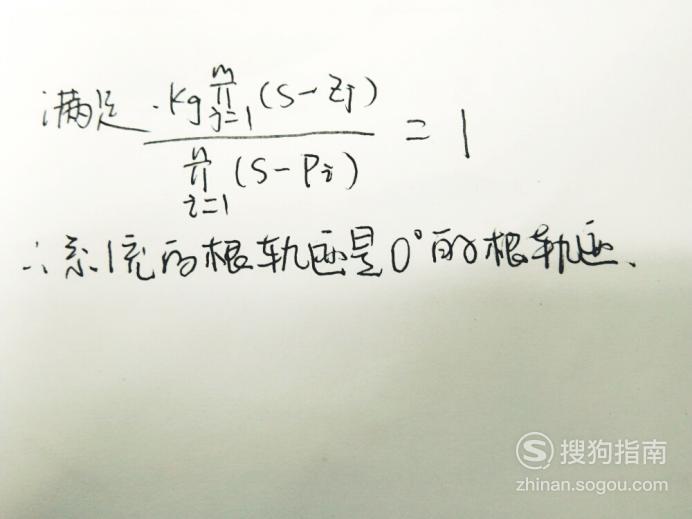 满足 Kg m∏j=1 (S-Zj) / n∏i=1 (S-Pi) = 1
∴系统的根轨迹是0°的根轨迹.
搜狗指南
zhinan.sogou.com